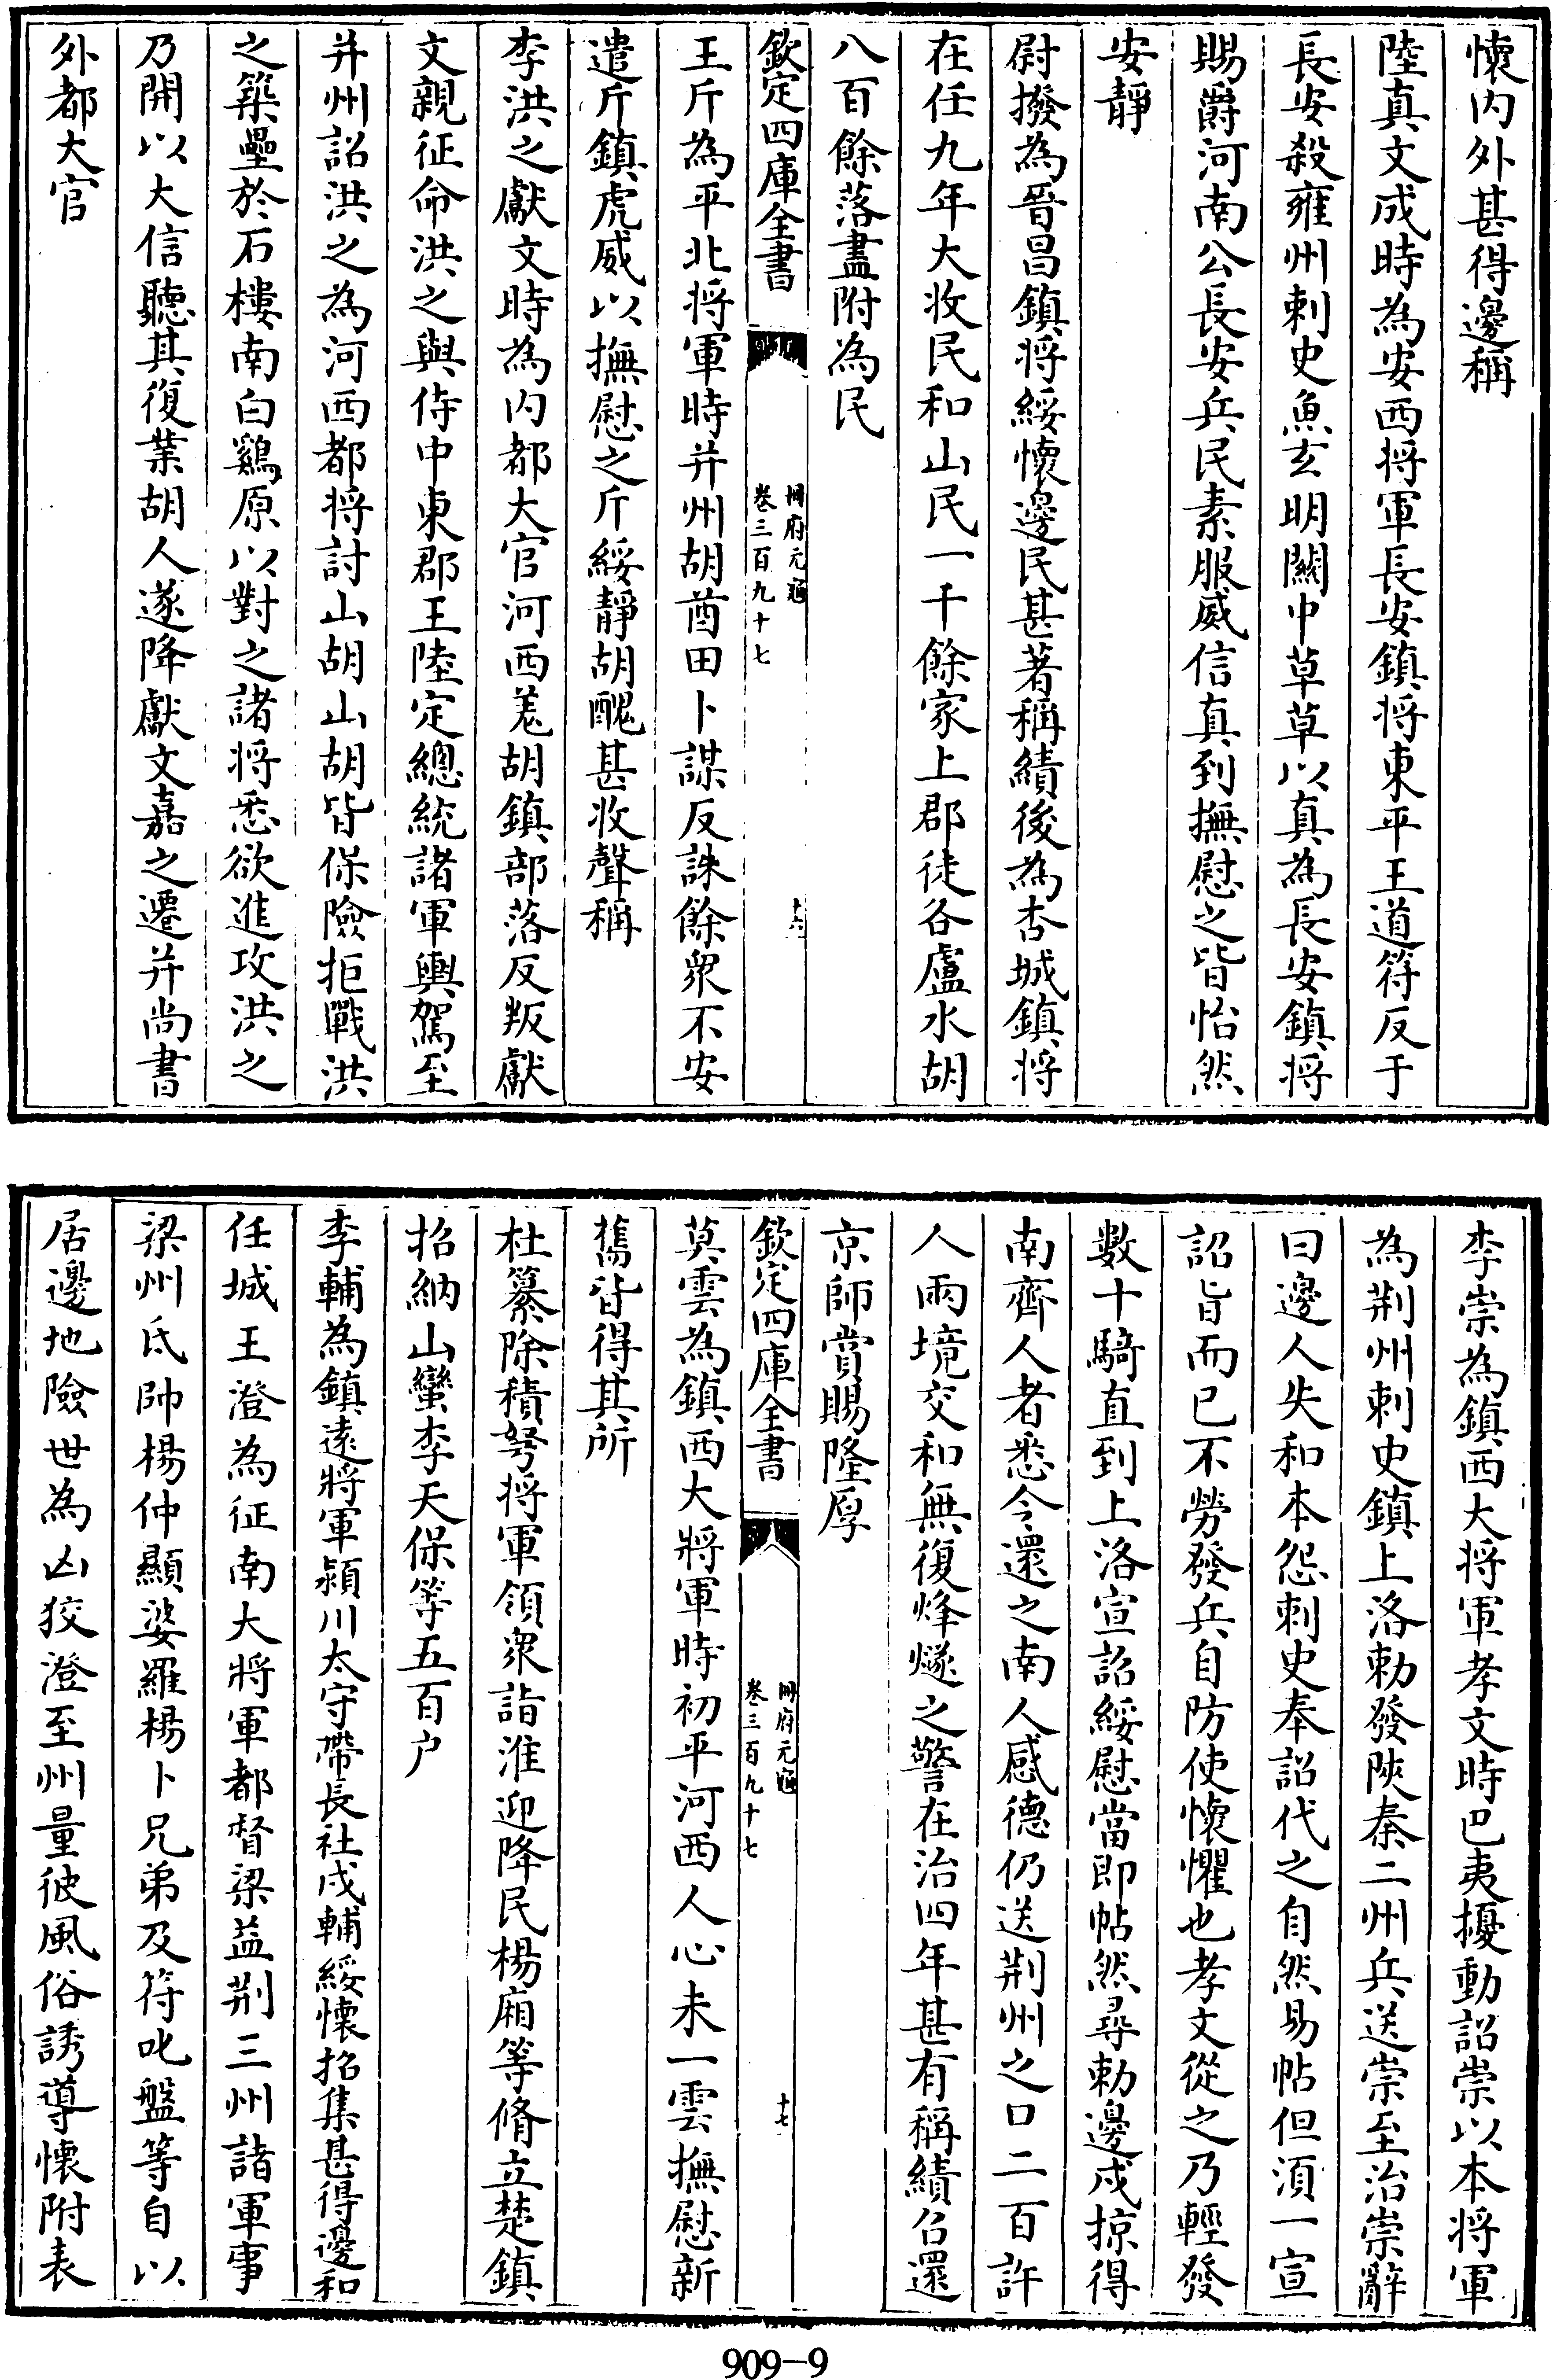 懷内外甚得邊稱
陸真文成時為安西將軍長安鎮將東平王道符反于
長安殺雍州刺史魚玄明關中草草以真為長安鎮將
賜爵河南公長安兵民素服威信真到撫慰之皆怡然
安靜
尉撥為晉昌鎮將綏懷邊民甚著稱績後為杏城鎮將
在任九年大收民和山民一千餘家上郡徒各盧水胡
八百餘落盡附為民
欽定四庫全書
冊府元龜
卷三百九十七
十六
王斤為平北將軍時并州胡酋田卜謀反誅餘衆不安
遣斤鎮虎威以撫慰之斤綏靜胡醜甚收聲稱
李洪之獻文時為内都大官河西羌胡鎮部落反叛獻
文親征命洪之與侍中東郡王陸定總統諸軍輿駕至
并州詔洪之為河西都將討山胡山胡皆保險拒戰洪
之築壘於石樓南白鷄原以對之諸將悉欲進攻洪之
乃開以大信聽其復業胡人遂降獻文嘉之遷并尚書
外都大官
李崇為鎮西大將軍孝文時巴夷擾動詔崇以本將軍
為荆州刺史鎮上洛勅發陝秦二州兵送崇至治崇辭
曰邊人失和本怨刺史奉詔代之自然易帖但須一宣
詔旨而已不勞發兵自防使懷懼也孝文從之乃輕發
數十騎直到上洛宣詔綏慰當即帖然尋勅邊戍掠得
南齊人者悉令還之南人感德仍送荆州之口二百許
人兩境交和無復烽燧之警在治四年甚有稱績召還
京師賞賜隆厚
欽定四庫全書
冊府元龜
卷三百九十七
十七
莫雲為鎮西大將軍時初平河西人心未一雲撫慰新
舊皆得其所
杜纂除積弩將軍領衆詣淮迎降民楊廂等脩立楚鎮
招納山蠻李天保等五百户
李輔為鎮遠將軍潁川太守帶長社戍輔綏懷招集甚得邊和
任城王澄為征南大將軍都督梁益荆三州諸軍事
梁州氐帥楊仲顯婆羅楊卜兄弟及符叱盤等自以
居邊地險世為凶狡澄至州量彼風俗誘導懷附表
909-9